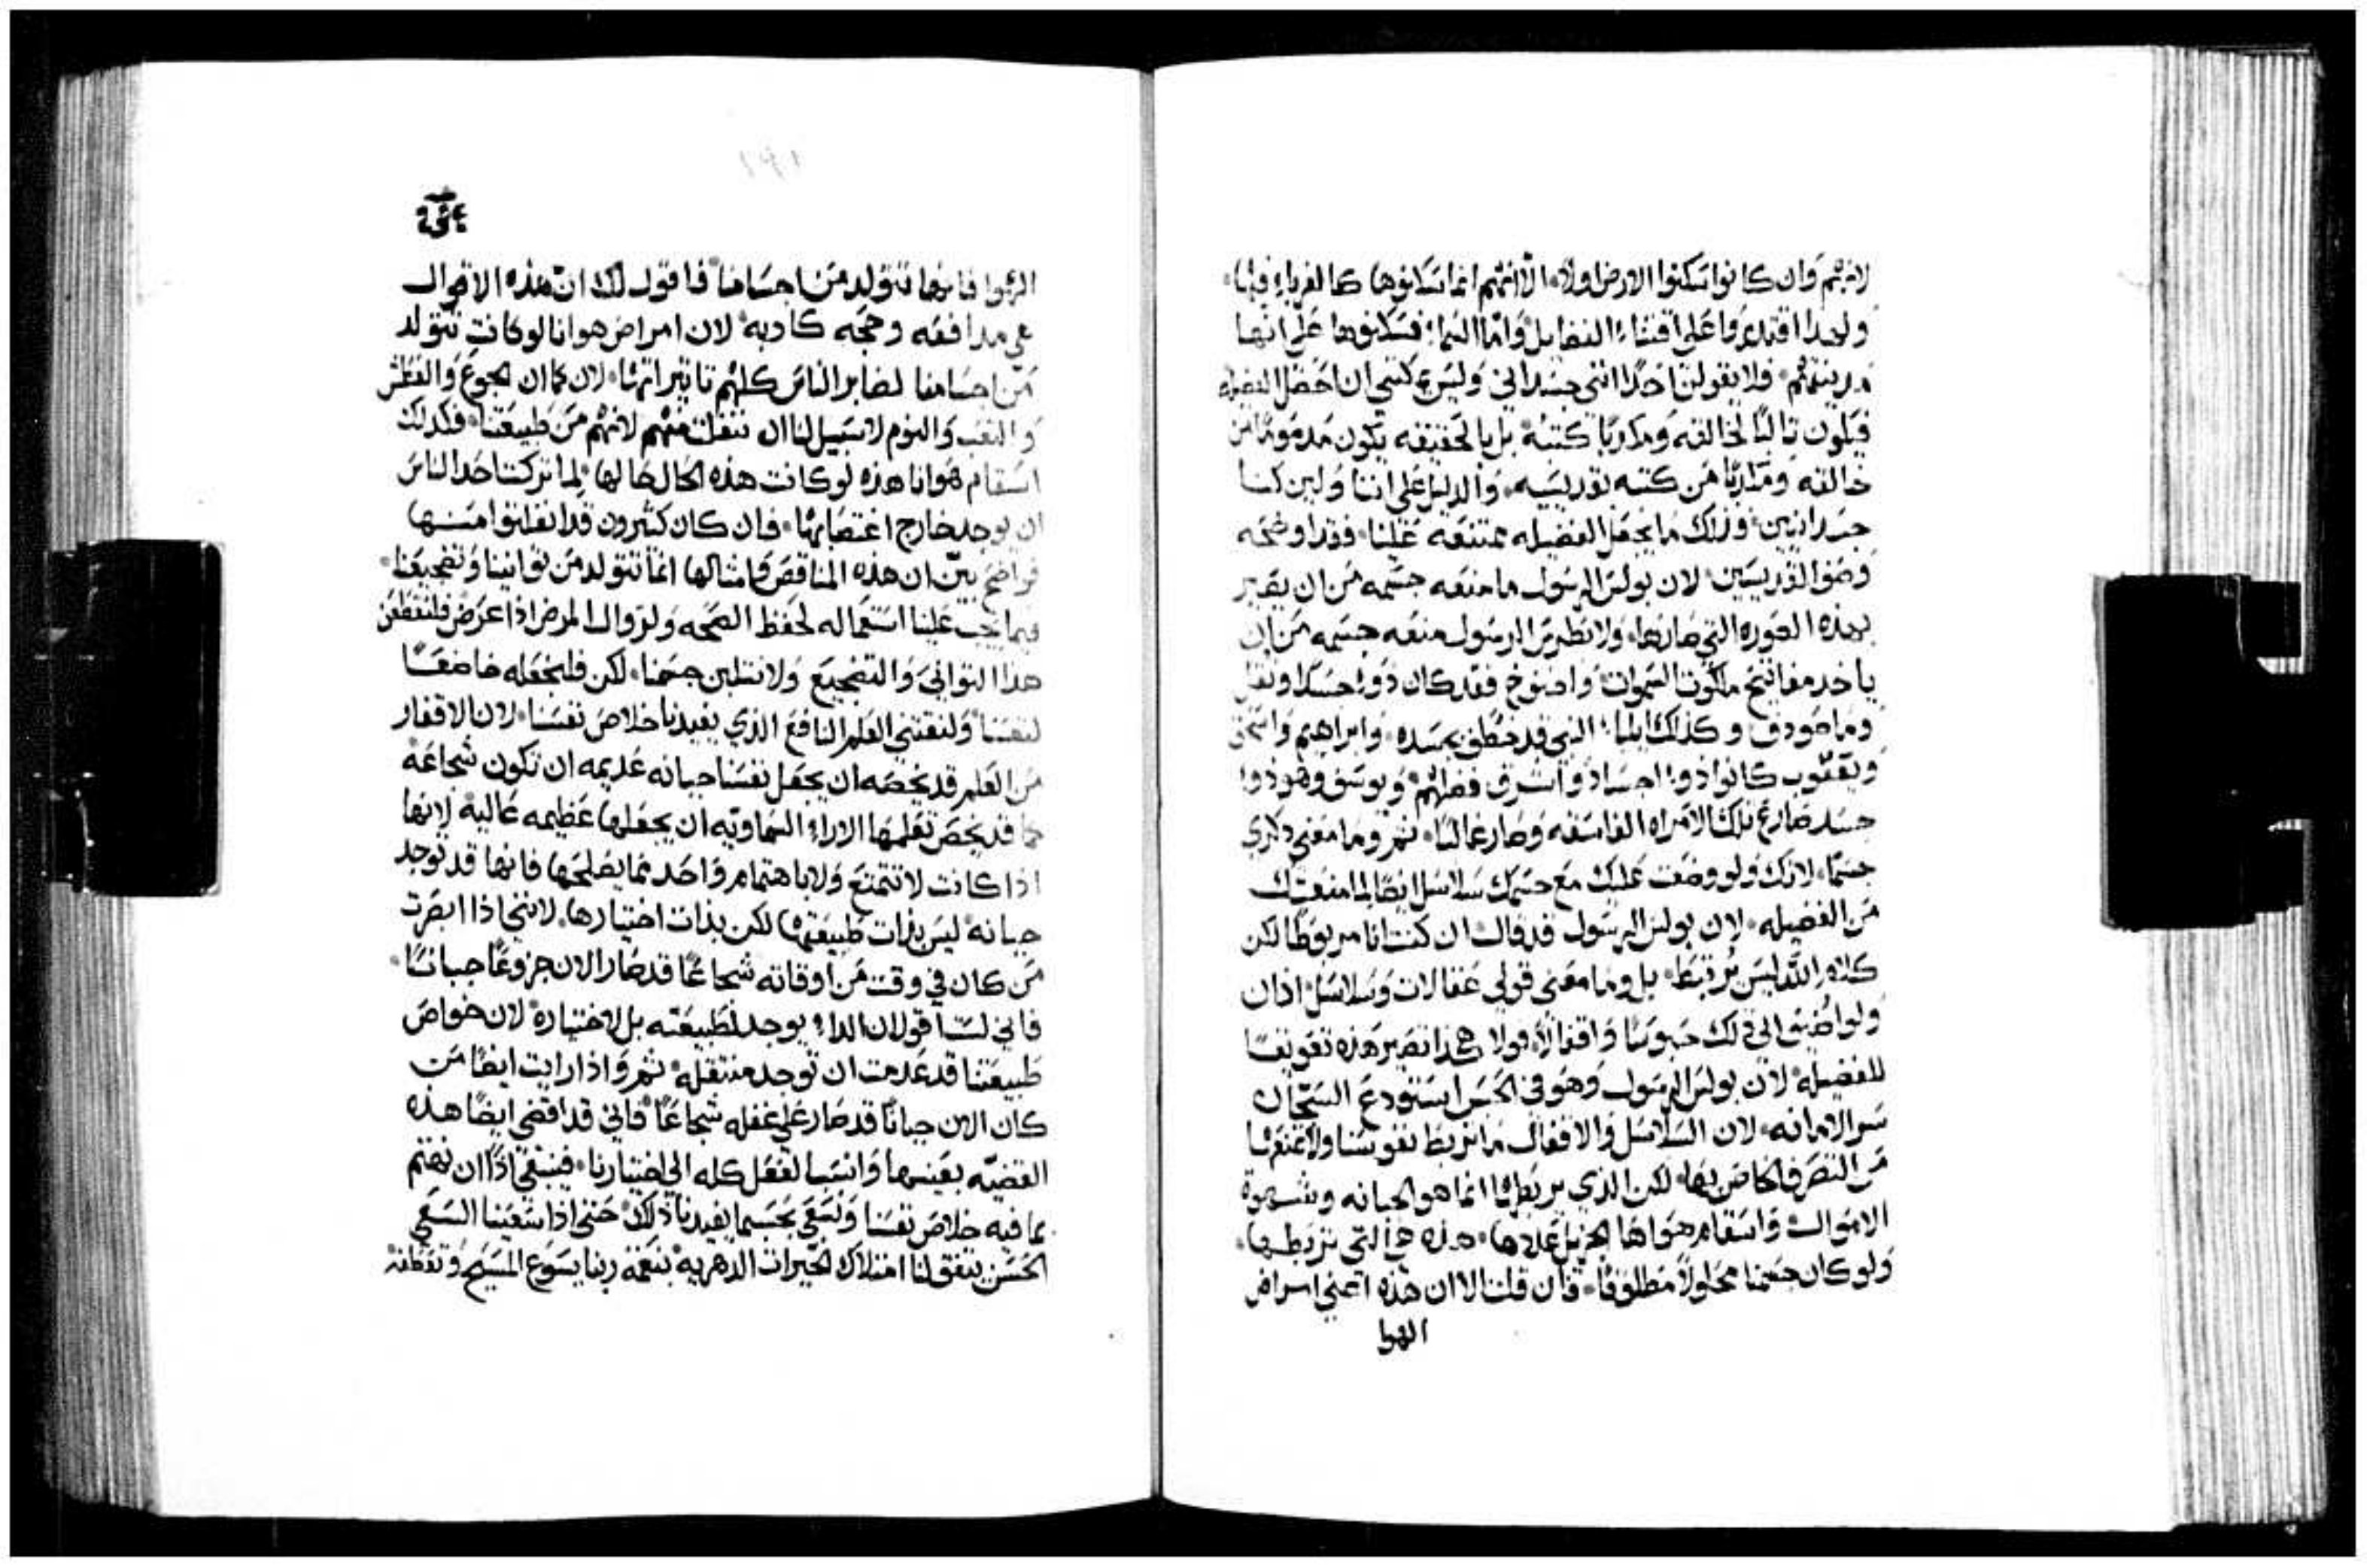 لانهم وان كانوا سكنوا الارض اولا الا انهم انما سكنوها كالغرباء فيها
ولهذا اقتدروا على اقتناء الفضايل واما السماء فسكنوها على انها
مدينتهم فلا يقولن احدا انني جسداني وليس يمكنني ان احصل الفضيله
خالقه ومداريا من كتبه بقديسيه والدليل على اننا ولين كنا
جسدانيين وذلك ما يجعل الفضيله ممتنعه علينا فقد اوضحه
وصف القديسين لان بولس الرسول ما منعه جسمه من ان يصير
بهذه الصوره التي صارها ولا بطرس الرسول منعه جسمه من ان
ياخد مفاتيح ملكوت السموات واخنوخ فقد كان ذو جسدا ونقل
وما صودف وكذلك ايليا النبي قد خطف بجسده وابراهيم واسحق
ويعقوب كانوا ذوا اجساد واشرق فضلهم ويوسف وهو ذوا
جسد صارع تلك الامراه الفاسقه وصار غالبا ثم وما معنى ذكري
جسما لانك ولو وضعت عليك مع جسمك سلاسل ايضا لما منعتك
من الفضيله لان بولس الرسول قد قال ان كنت انا مربوطا لكن
كلام الله ليس مرتبط بل وما معنى قولي عقالات وسلاسل اذ ان
ولو اضيف الى ذلك حبوسا واقفالا فولا هكذا تصير هذه تعويقا
للفضيله لان بولس الرسول وهو في الحبس استودع السجان
سر الامانه لان السلاسل والاقفال ما تربط نفوسنا ولا تمنعها
من التصرف الخاص بها لكن الذي يربطها انما هو الجبانه وشهوة
الاموال واسقام هواها الجزيل عددها هذه هي التي تربطها
ولو كان جسمنا محلولا مطلوقا فان قلت الا ان هذه اعني امراض
الهوا
الهوا فانها تتولد من اجسامنا فاقول لك ان هذه الاقوال
هي مدافعه وحجه كاذبه لان امراض هوانا لو كانت تتولد
من اجسامنا لصابر الناس كلهم تاثيراتها لان كما ان الجوع والعطش
والتعب والنوم لا سبيل لنا ان نتفلت منهم لانهم من طبيعتنا فكذلك
اسقام هوانا هذه لو كانت هذه الحال حالها لما تركت احدا الناس
ان يوجد خارج اغتصابها فان كان كثيرون قد انفلتوا منها
فواضح بين ان هذه المناقص وامثالها انما تتولد من توانينا وتضجيعنا
فيما يجب علينا استعماله لحفظ الصحه ولزوال المرض اذا عرض فلنقطعن
هذا التواني والتضجيع ولا نثلبن جسمنا لكن فلنجعله خاضعا
لنفسنا ولنقتني العلم النافع الذي يفيدنا خلاص نفسنا لان الاقفار
من العلم قد يخصه ان يجعل نفسنا جبانه عديمه ان تكون شجاعه
كما قد يخص تعلمها الاراء السماويه ان يجعلها عظيمه عاليه لانها
اذا كانت لا تتمتع ولا باهتمام واحد مما يصلحها فانها قد توجد
جبانه ليس بذات طبيعتها لكن بذات اختيارها لانني اذا ابصرت
من كان في وقت من اوقاته شجاعا قد صار الان جزوعا جبانا
فاني لست اقول ان الداء يوجد لطبيعته بل لاختياره لان خواص
طبيعتنا قد عدمت ان توجد منتقله ثم واذا رايت ايضا من
كان الان جبانا قد صار على غفله شجاعا فاني قد اقضي ايضا هذه
القضيه بعينها وانسب الفعل كله الى اختيارنا فينبغي اذا ان نهتم
بما فيه خلاص نفسنا ونسعى بحسبما يفيدنا ذلك حتى اذا سعينا السعي
الحسن يتفق لنا امتلاك الخيرات الدهريه بنعمة ربنا يسوع المسيح وتعطفه